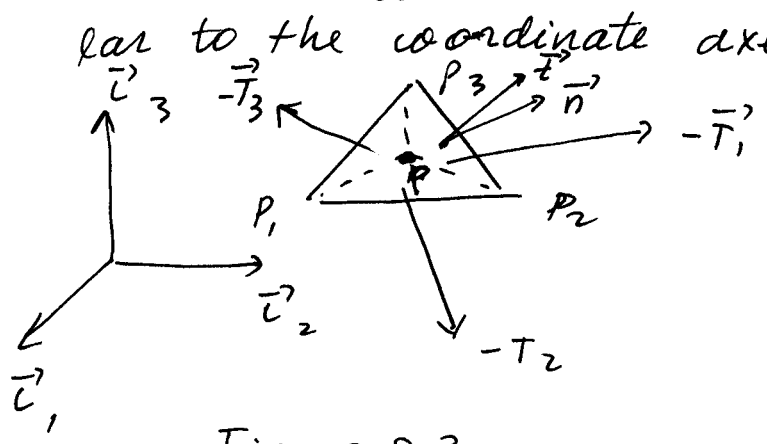 lar to the coordinate axe
i⃗ 3 -T⃗3 P3 t⃗
n⃗
-T⃗1
P
P1 P2
i⃗2
-T2
i⃗1